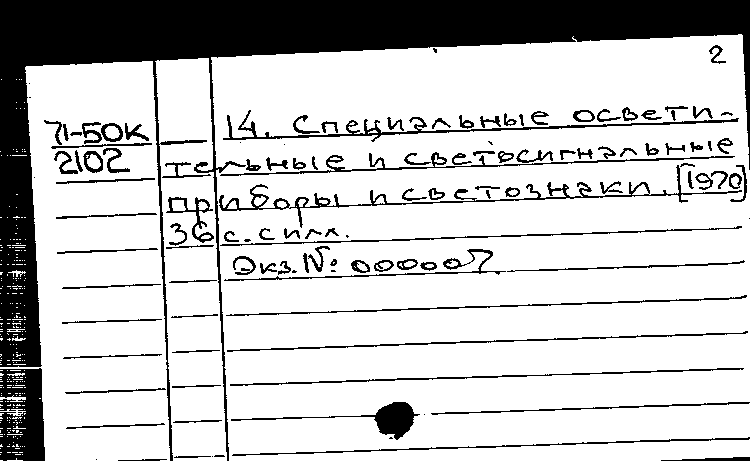 2
71-50К 14. Специальные освети-
2102 тельные и светосигнальные
приборы и светознаки. [1970]
36 с. с илл.
Экз. № 000007.